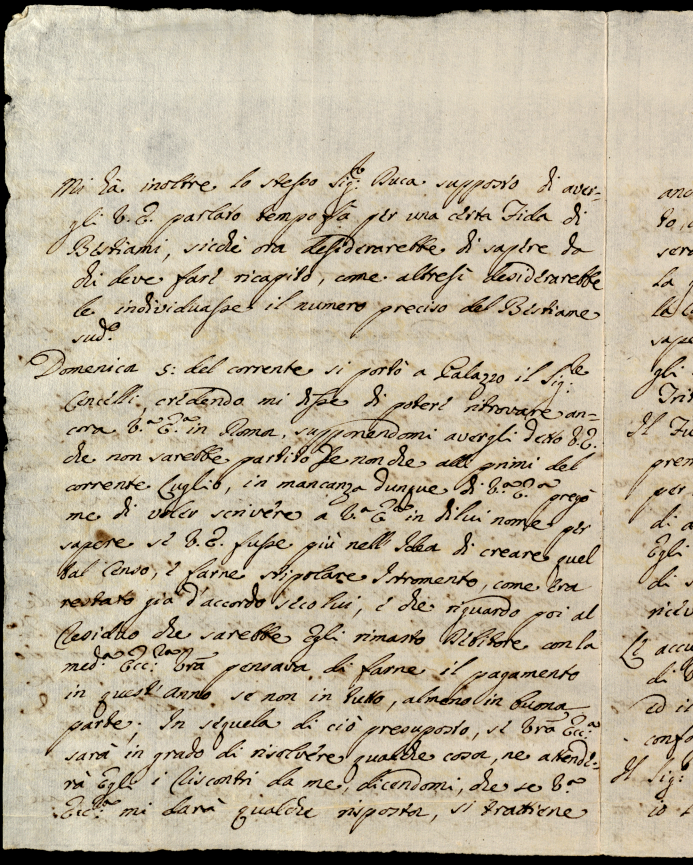 Mi hà inoltre lo stesso Sig.re Duca supposto di aver=
gli V. E. parlato tempo fà per una certa Fida di
Bestiami, sicche ora desiderarebbe di sapere da
chi deve fare ricapito, come altresì desiderarebbe
le individuasse il numero preciso del Bestiame
sud.o
Domenica 5: del corrente si portò a Palazzo il Sig.re
Cencelli, credendo mi disse di potere ritrovare an=
cora V.a E.a in Roma, supponendomi avergli detto V. E.
che non sarebbe partito se non che alli primi del
corrente Luglio, in mancanza dunque di V.a E.a pregò
me di voler scrivere a V.a E.a in di lui nome per
sapere se V. E. fusse più nell'Idea di creare quel
tal Censo, e farne stipolare Istromento, come era
restato già d'accordo seco lui, e che riguardo poi al
Residuo che sarebbe Egli rimasto Debitore con la
med.a Ecc: Vrà pensava di farne il pagamento
in quest'anno se non in tutto, almeno in buona
parte; In sequela di ciò presuposto, se Vrà Ecc.a
sarà in grado di risolvere qualche cosa, ne attende=
rà Egli i Riscontri da me, dicendomi, che se V.a
Ecc.a mi darà qualche risposta, si trattiene
anc
to, c
sera
la g
la c
sape
gli
Trit
Il Fu
prem
per
di a
Egli
di s
ricev
Le accu
di V
ed i
confo
Il Sig:
io